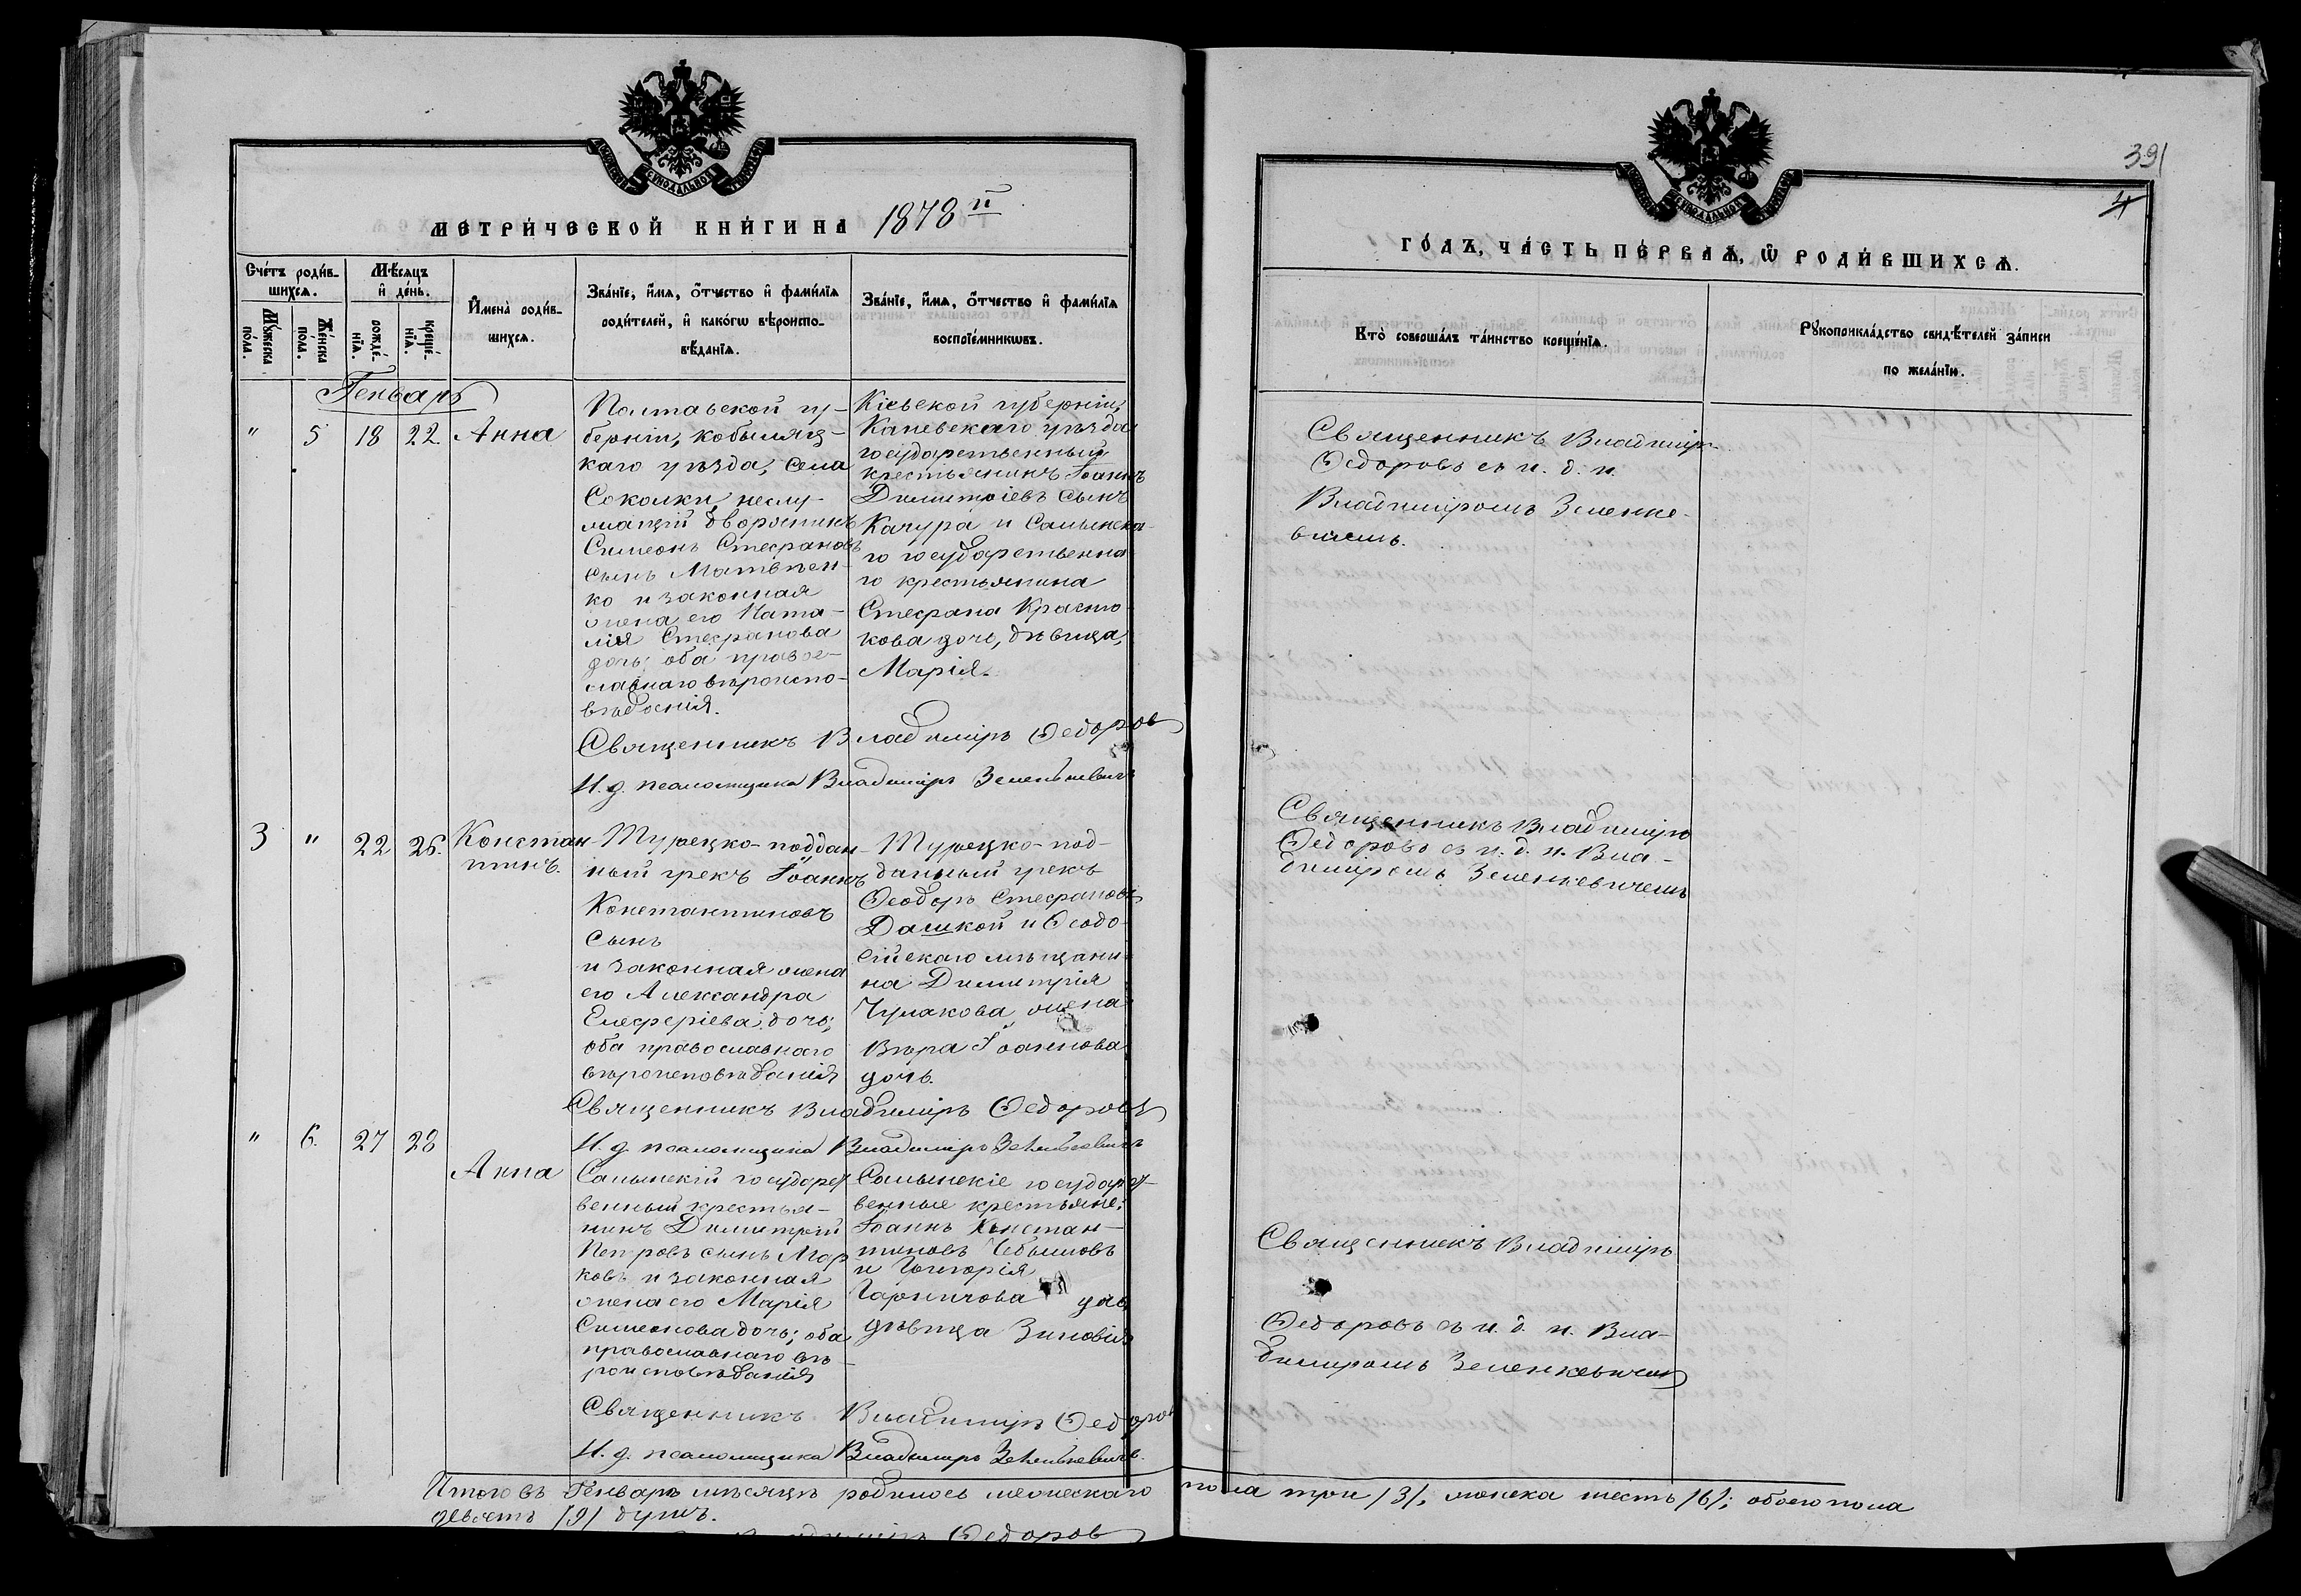 МЕТРИ́ЧЕСКОЙ КНИ́ГИ НА 1878й
Сче́тъ роди́в-
шихсѧ.
Мѣ́сѧцъ
и҆ де́нь.
Мꙋ́жеска
по́ла.
Же́нска
по́ла.
рожде́-
нїѧ.
креще́-
нїѧ.
И҆мена̀ роди́в-
шихсѧ.
Зва́нїе, и҆́мѧ, ѻ҆́тчество и҆ фами́лїѧ
роди́телей, и҆ како́гѡ вѣроиспо-
вѣ́данїѧ.
Зва́нїе, и҆́мѧ, ѻ҆́тчество и҆ фами́лїѧ
воспрїе́мникѡвъ.
Генварь
" 5 18 22 Анна
Полтавской гу-
берніи, кобыляц-
каго уѣзда, села
Соколки, неслу-
жащій дворянинъ
Симеонъ Стефановъ
сынъ Матвѣен-
ко и законная
жена его Ната-
лія Стефанова
дочь; оба право-
славнаго вѣроиспо-
вѣданія.
Кіевской губерніи,
Каневскаго уѣзда
государственный
крестьянинъ Іоаннъ
Димитріевъ сынъ
Качура и Салынска-
го государственна-
го крестьянина
Стефана
кова дочь, дѣвица,
Марія.
Священникъ Владиміръ Ѳедоровъ
И. д. псаломщика Владиміръ Зеленкевичъ
3 " 22 26. Констан-
тинъ.
Турецко-поддан-
ный грекъ Іоаннъ
Константиновъ
сынъ
и законная жена
его Александра
Елеѳеріева дочь;
оба православнаго
вѣроисповѣданія
Турецко-под-
данный грекъ
Ѳеодоръ Стефановъ
Далукой и Ѳеодо-
сійскаго мѣщани-
на Димитрія
Чумакова жена
Вѣра Іоаннова
дочь.
Священникъ Владиміръ Ѳедоровъ
И. д. псаломщика Владиміръ Зеленкевичъ
" 6. 27 28
Анна
Салынскій государст-
венный крестья-
нинъ Димитрій
Петровъ сынъ Мар-
ковъ и законная
жена его Марія
Симеонова дочь; оба
православнаго вѣ-
роисповѣданія
Салынскіе государст-
венные крестьяне:
Іоаннъ Констан-
тиновъ
и Григорія
дѣвица Зиновія
Священникъ Владиміръ Ѳедоровъ
И. д. псаломщика Владиміръ Зеленкевичъ.
Итого въ Генварѣ мѣсяцѣ родилось мужескаго
девять /9/ душъ.
Ѳедоровъ
391
4
ГО́ДЪ, ЧА́СТЬ ПЕ́РВАѦ, Ѽ РОДИ́ВШИХСѦ.
Кто̀ соверша́лъ та́инство креще́нїѧ.
Рꙋкоприкла́дство свидѣ́телей за́писи
по жела́нїю.
Священникъ Владиміръ
Ѳедоровъ съ и. д. п.
Владиміромъ Зеленке-
вичемъ.
Священникъ Владиміръ
Ѳедоровъ съ и. д. п. Вла-
диміромъ Зеленкевичемъ
Священникъ Владиміръ
Ѳедоровъ съ и. д. п. Вла-
диміромъ Зеленкевичемъ
пола три /3/, женска шесть /6/; обоего пола